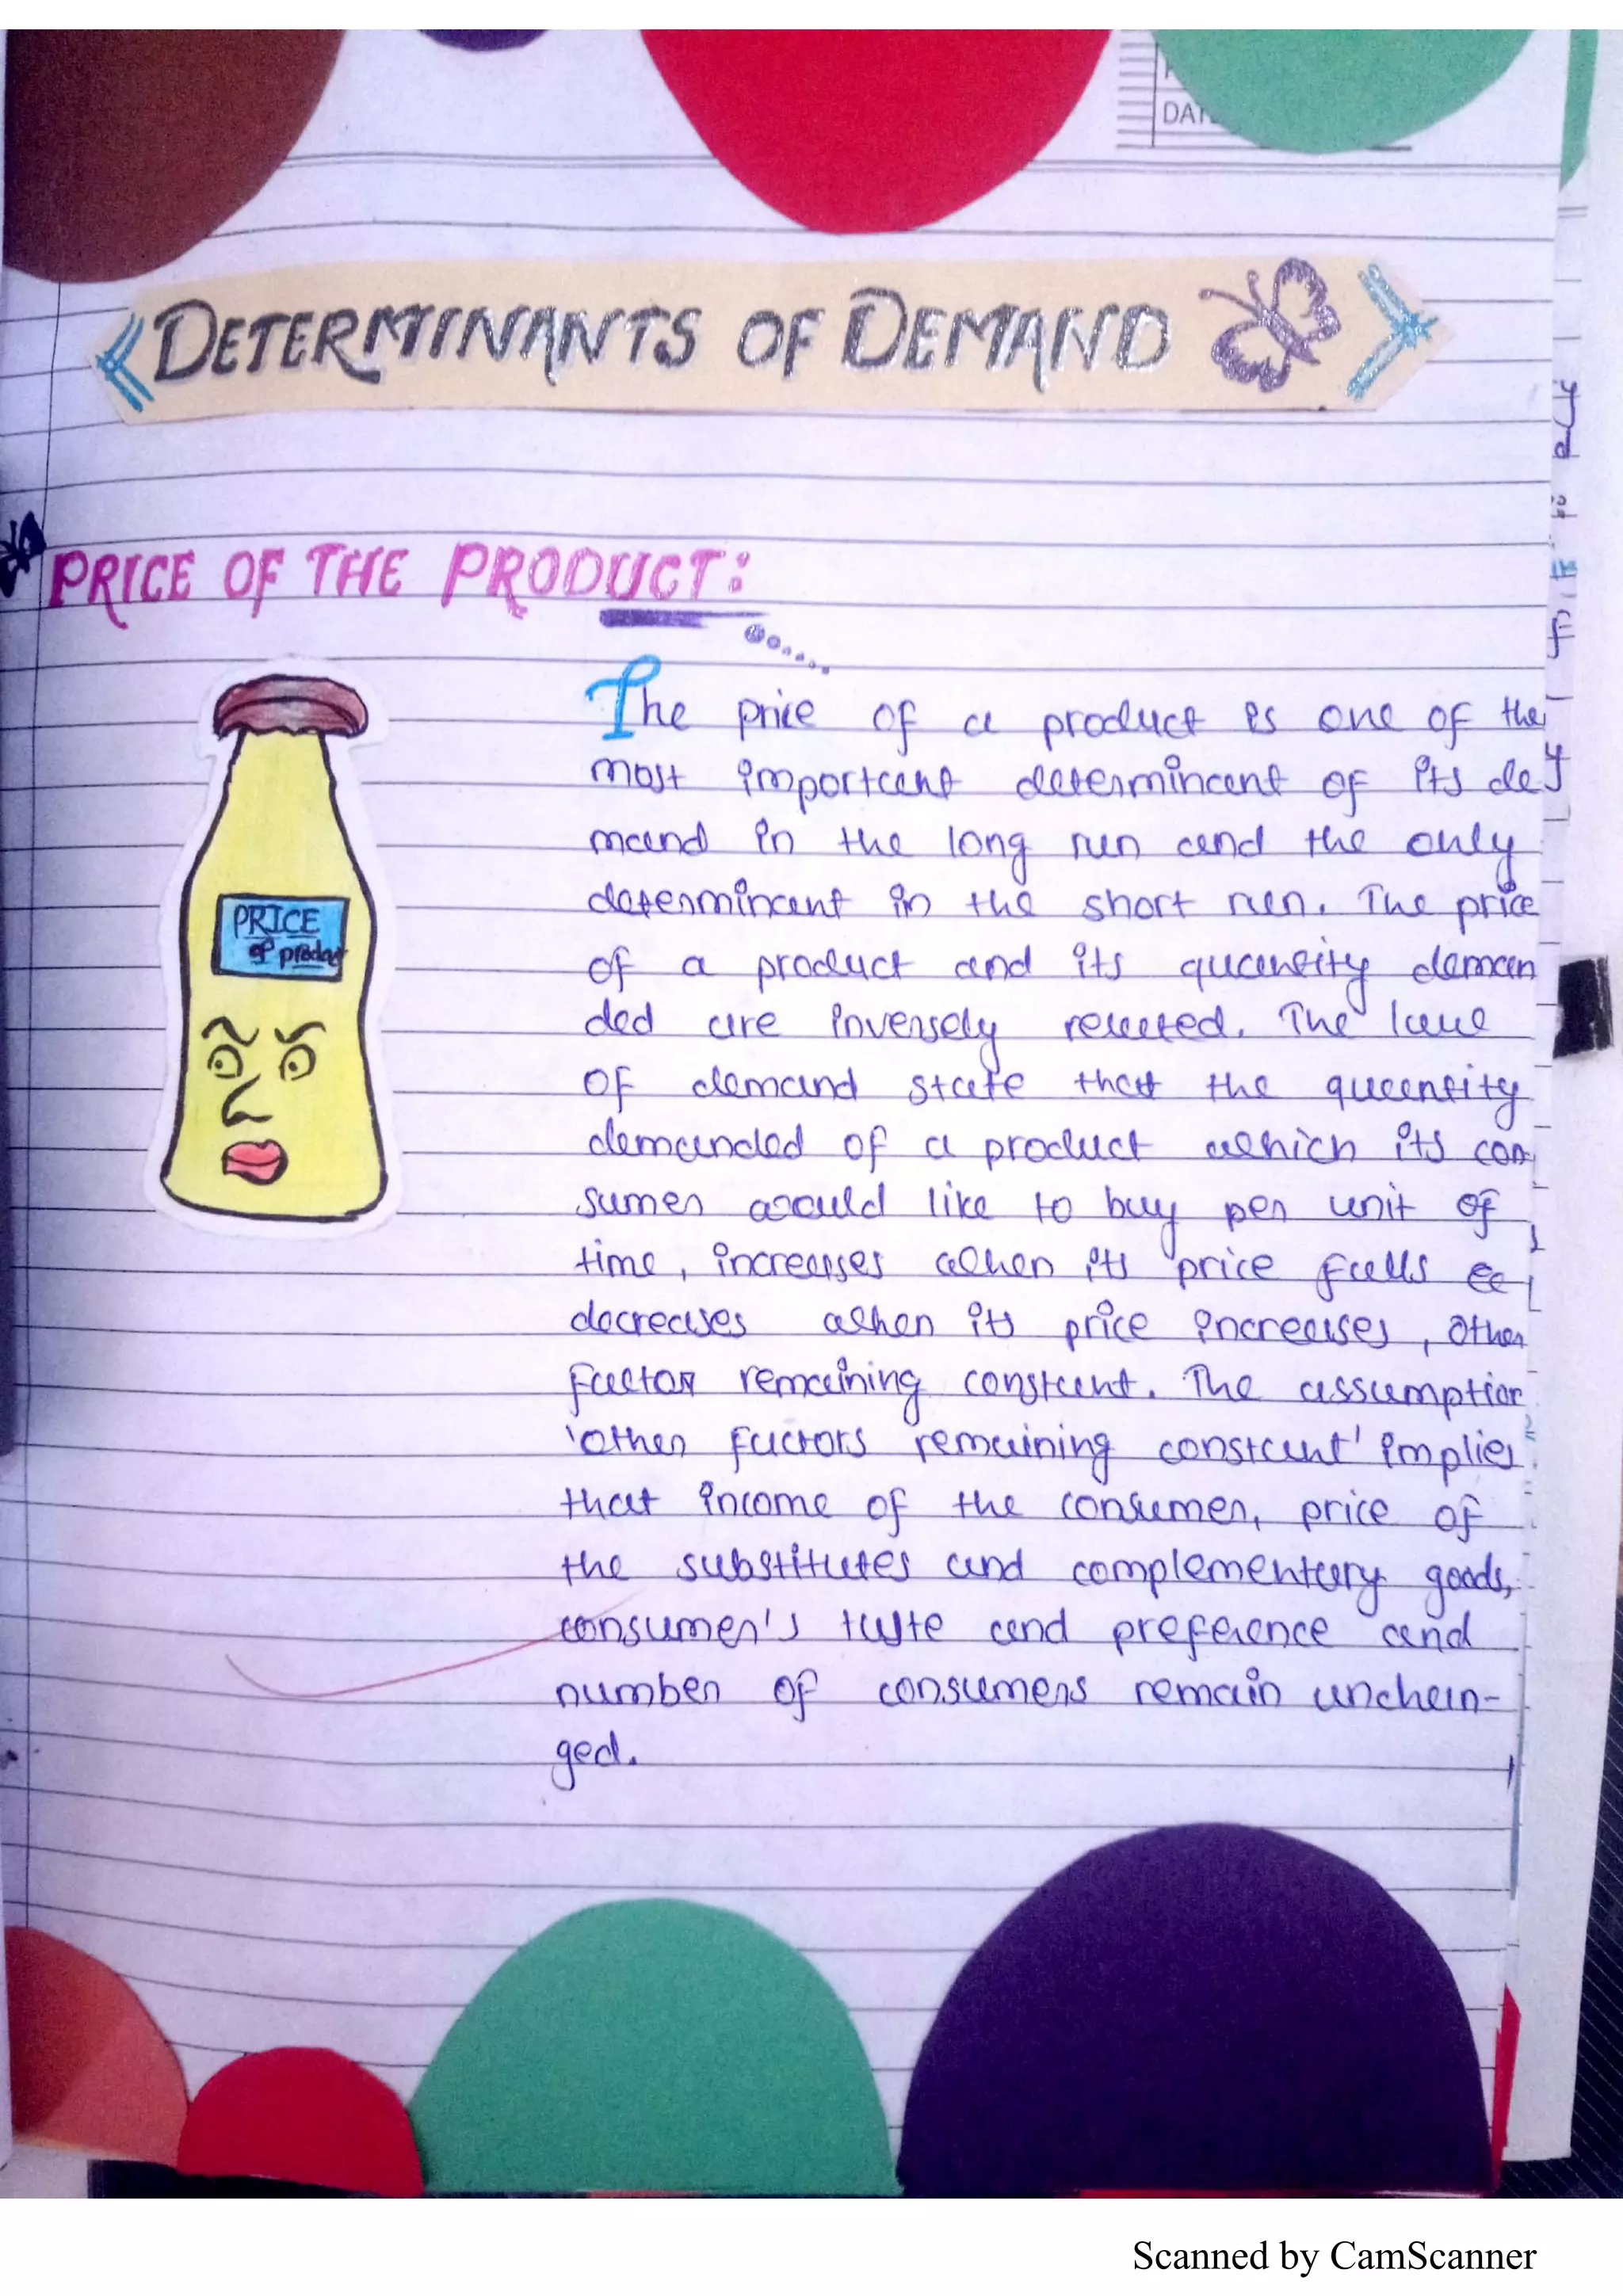 DATE
DETERMINANTS OF DEMAND
PRICE OF THE PRODUCT:
PRICE
of product
The price of a product is one of the
most important determinant of its de
mand in the long run and the only
determinant in the short run. The price
of a product and its quantity deman
ded are inversely related. The law
of demand state that the quantity
demanded of a product which its con
sumer would like to buy per unit of
time, increases when its price falls &
decreases when its price increases, other
factor remaining constant. The assumption
'other factors remaining constant' implies
that income of the consumer, price of
the substitutes and complementary goods,
consumer's taste and preference and
number of consumers remain unchan-
ged.
Scanned by CamScanner